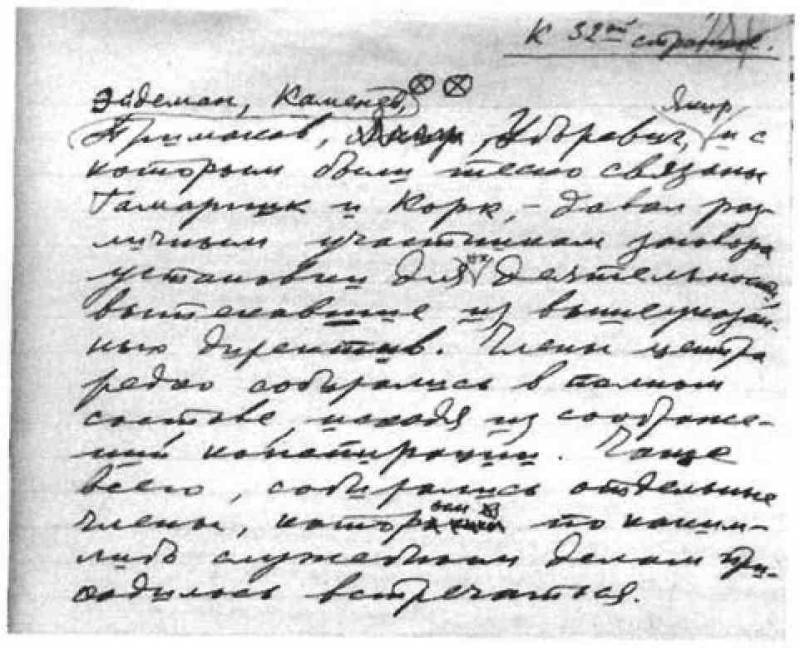 К 32ой странице.
Эйдеман, Каменев,
Якир,
Примаков, Уборевич, и с
которыми были тесно связаны
Гамарник и Корк, – давал раз-
личным участникам заговора
установки для их деятельности,
вытекавшие из вышеуказан-
ных директив. Члены центра
редко собирались в полном
составе, исходя из соображе-
ний конспирации. Чаще
всего, собирались отдельные
члены, которым по каким-
либо служебным делам при-
ходилось встречаться.